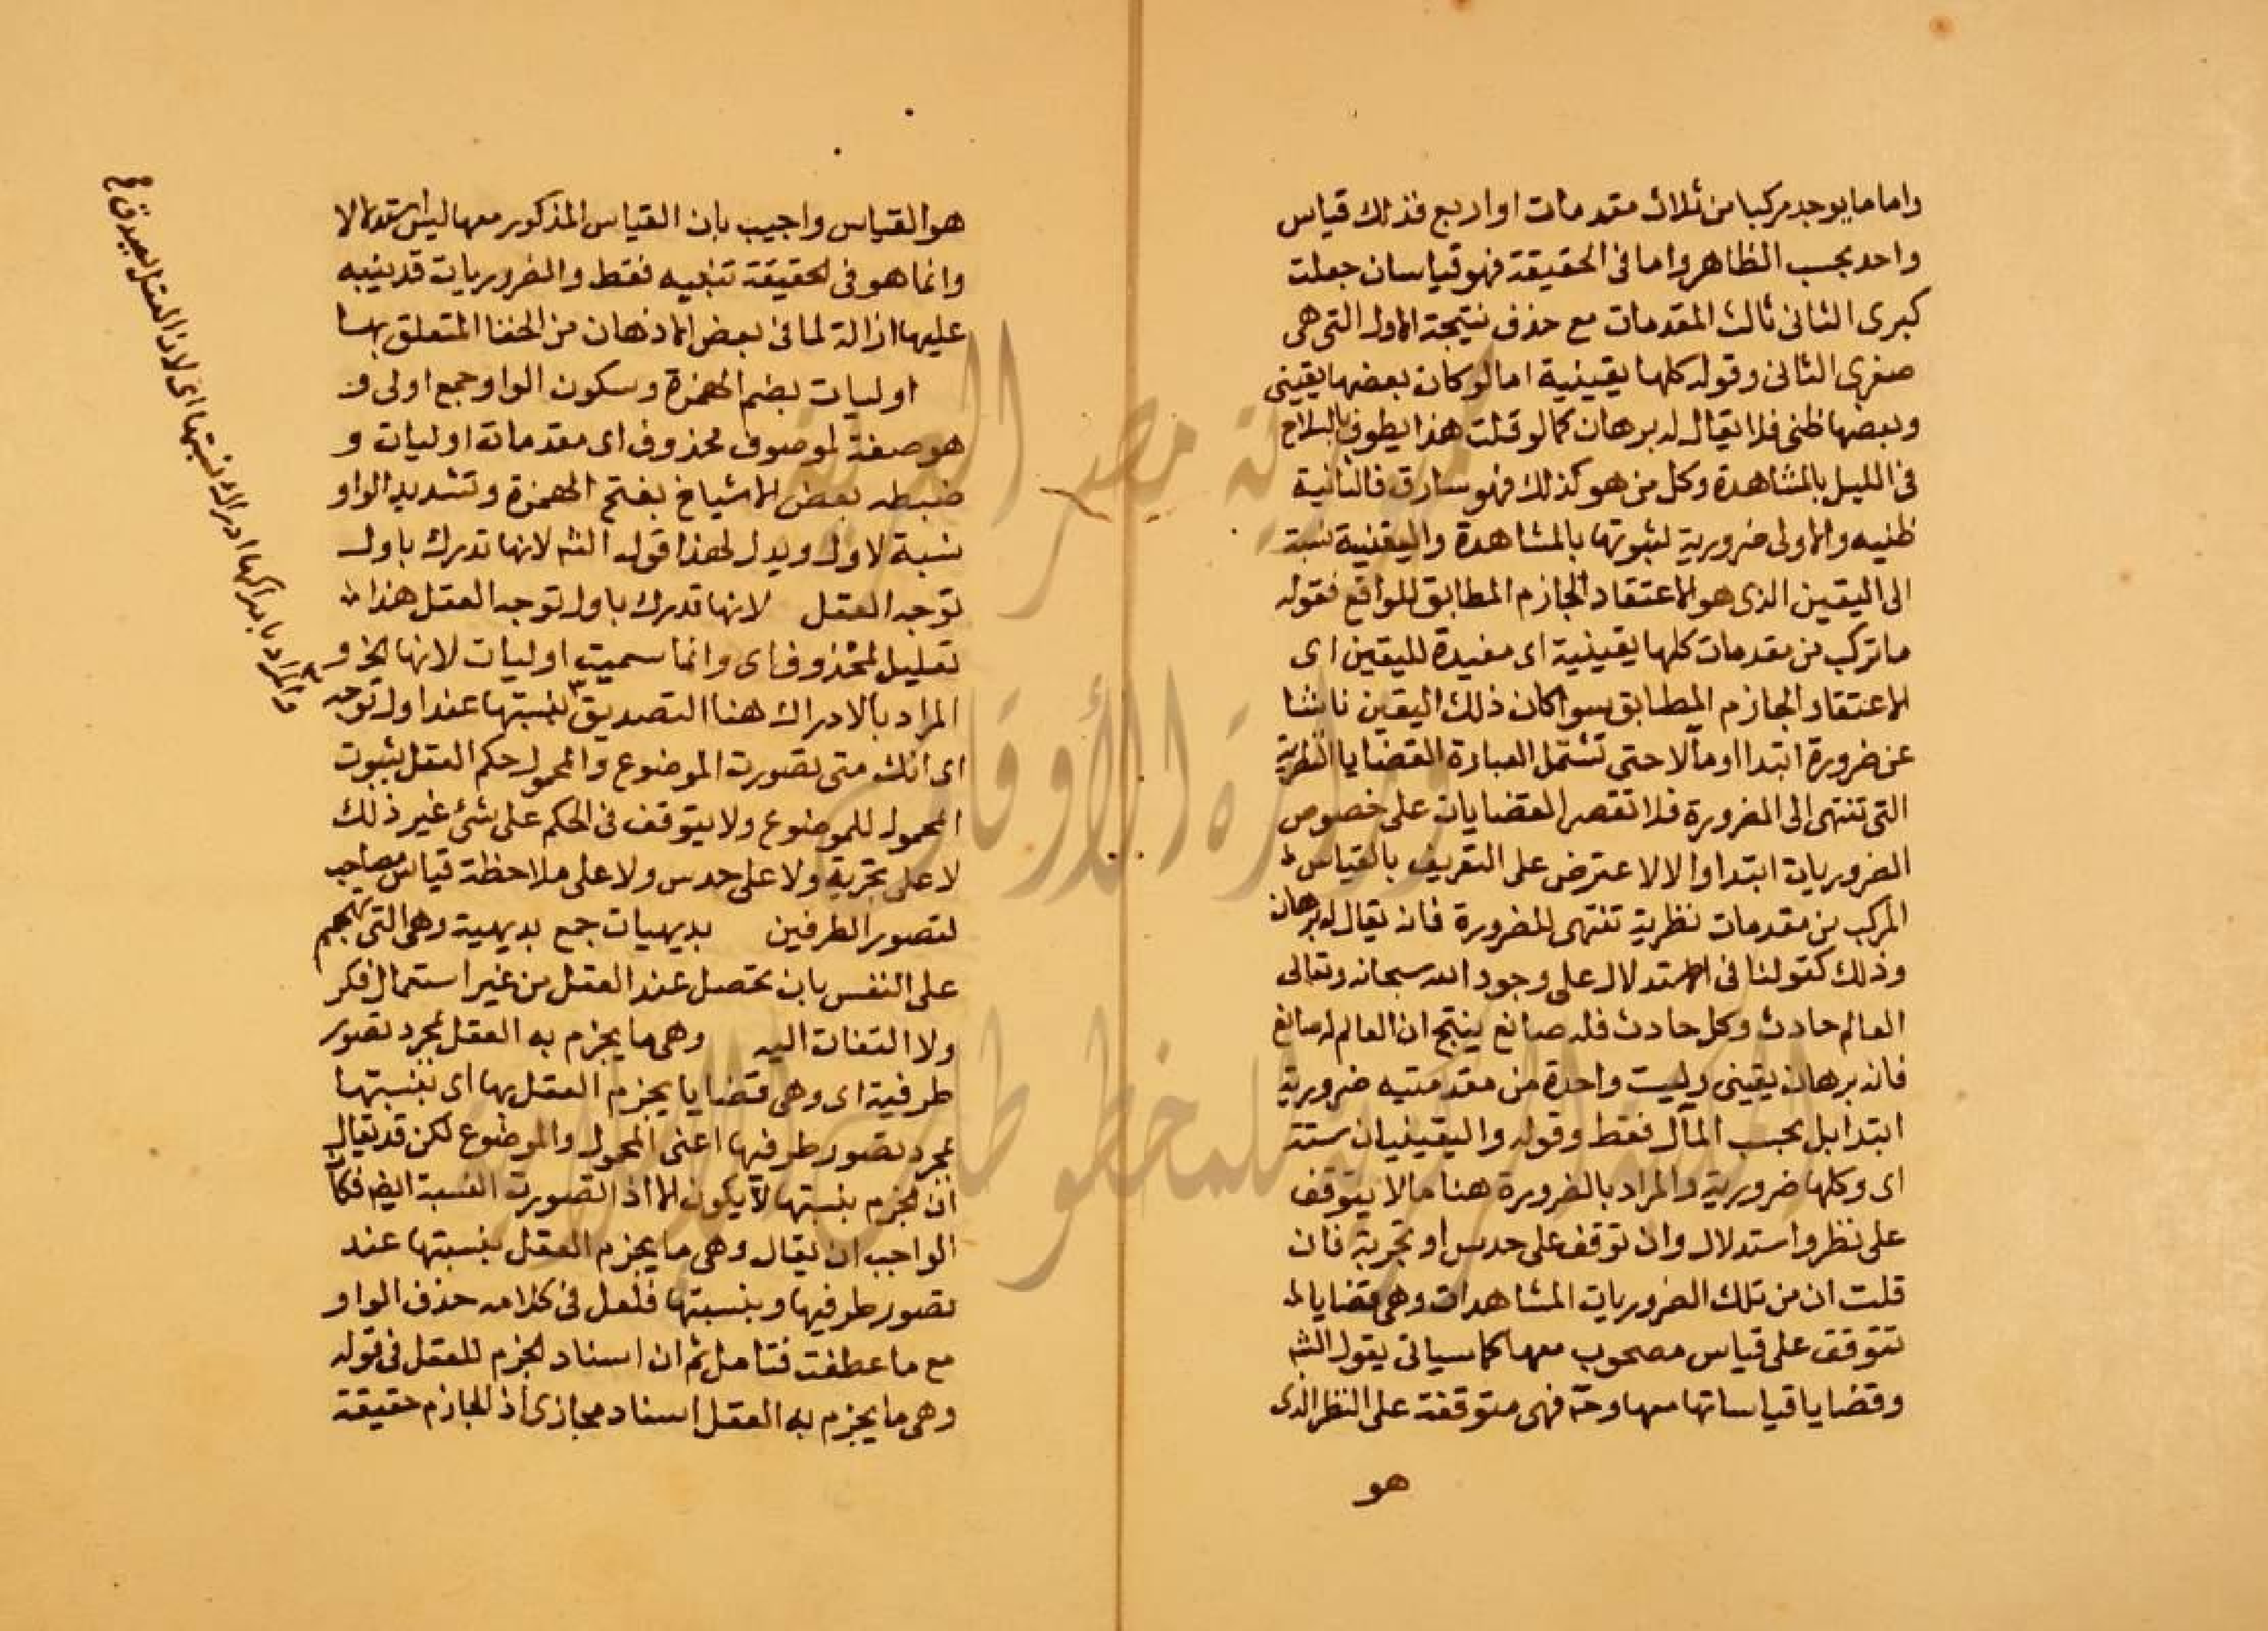 واما ما يوجد مركبا من ثلاث مقدمات او اربع فذلك قياس
واحد بحسب الظاهر واما فى الحقيقة فهو قياسان جعلت
كبرى الثانى ثالث المقدمات مع حذف نتيجة الاول التى هى
صغرى الثانى وقوله كلها يقينية اما لو كان بعضها يقينى
وبعضها ظنى فلا يقال له برهان كما لو قلت هذا يطوف بالسلاح
فى الليل بالمشاهدة وكل من هو كذلك فهو سارق فالثانية
ظنيه والاولى ضرورية لثبوتها بالمشاهدة واليقينية نسبة
الى اليقين الذى هو الاعتقاد الجازم المطابق للواقع فقوله
ما تركب من مقدمات كلها يقينية اى مفيدة لليقين اى
الاعتقاد الجازم المطابق سوا كان ذلك اليقين ناشئا
عن ضرورة ابتدا او مآلا حتى تشتمل العبارة القضايا النظرية
التى تنتهى الى الضرورة فلا تقصر القضايات على خصوص
الضروريات ابتدا والا لا عترض على التعريف بالقياس
المركب من مقدمات نظرية تنتهى للضرورة فانه يقال له برهان
وذلك كقولنا فى الاستدلال على وجود الله سبحانه وتعالى
العالم حادث وكل حادث فله صانع ينتج ان العالم له صانع
فانه برهان يقينى وليست واحدة من مقدمتيه ضرورية
ابتدا بل بحسب المآل فقط وقوله واليقينيات ستة
اى وكلها ضرورية والمراد بالضرورة هنا ما لا يتوقف
على نظر واستدلال وان توقف على حدس او تجربة فان
قلت ان من تلك الضروريات المشاهدات وهى قضايا
تتوقف على قياس مصحوب معها كما سياتى يقول الشم
وقضايا قياساتها معها وحـ فهى متوقفة على النظر الذى
هو
هو القياس واجيب بان القياس المذكور معها ليس استدلالا
وانما هو فى الحقيقة تنبيه فقط والضروريات قد ينبه
عليها ازالة لما فى بعض الاذهان من الخفا المتعلق بها
اوليات بضم الهمزة وسكون الواو جمع اولى و
هو صفة لموصوف محذوف اى مقدمات اوليات و
ضبطه بعض الاشياخ بفتح الهمزة وتشديد الواو
نسبة لاول ويدل لهذا قول الشم لانها تدرك باول
توجه العقل لانها تدرك باول توجه العقل هذا
تعليل لمحذوف اى وانما سميت اوليات لانها الخ و
المراد بالادراك هنا التصديق بنسبتها عند اول توجه
اى انك متى تصورت الموضوع والمحمول حكم العقل بثبوت
المحمول للموضوع ولا يتوقف فى الحكم على شئ غير ذلك
لا على تجربة ولا على حدس ولا على ملاحظة قياس مصاحب
لتصور الطرفين بديهيات جمع بديهية وهى التى تهجم
على النفس بان تحصل عند العقل من غير استعمال فكر
ولا التفات اليه وهى ما يجزم به العقل بمجرد تصور
طرفية اى وهى قضايا يجزم العقل بها اى بنسبتها
بمجرد تصور طرفيها اعنى المحمول والموضوع لكن قد يقال
ان الجزم بنسبتها لا يكون الا اذا تصورت النسبة ايضا فكان
الواجب ان يقال وهى ما يجزم العقل بنسبتها عند
تصور طرفيها وبنسبتها فلعل فى كلامه حذف الواو
مع ما عطفت فتامل ثم ان اسناد الجزم للعقل فى قوله
وهى ما يجزم به العقل اسناد مجازى اذ الجازم حقيقة
والمراد بادراكها ادراك نسبتها اى لان العقل يصدق
جمهورية مصر العربية
وزارة الأوقاف
المكتبة المركزية للمخطوطات الإسلامية